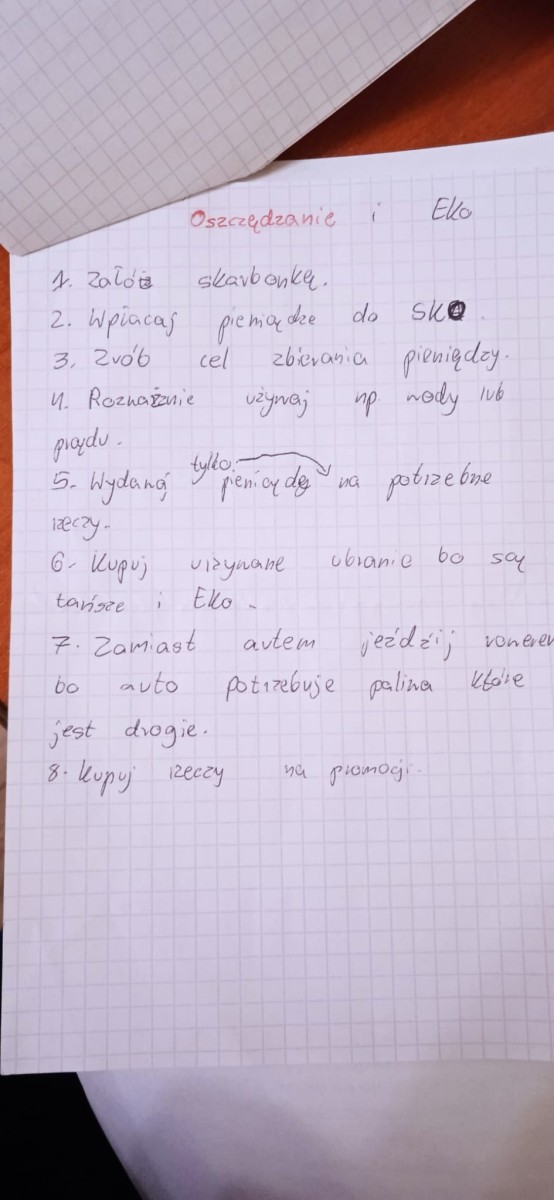 Oszczędzanie i Eko
1. Załóż skarbonkę.
2. Wpłacaj pieniądze do SKO.
3. Zrób cel zbierania pieniędzy.
4. Rozważnie używaj np. wody lub
prądu.
5. Wydawaj tylko pieniądze na potrzebne
rzeczy.
6. Kupuj używane ubranie bo są
tańsze i Eko.
7. Zamiast autem jeździj rowerem
bo auto potrzebuje paliwa które
jest drogie.
8. Kupuj rzeczy na promocji.